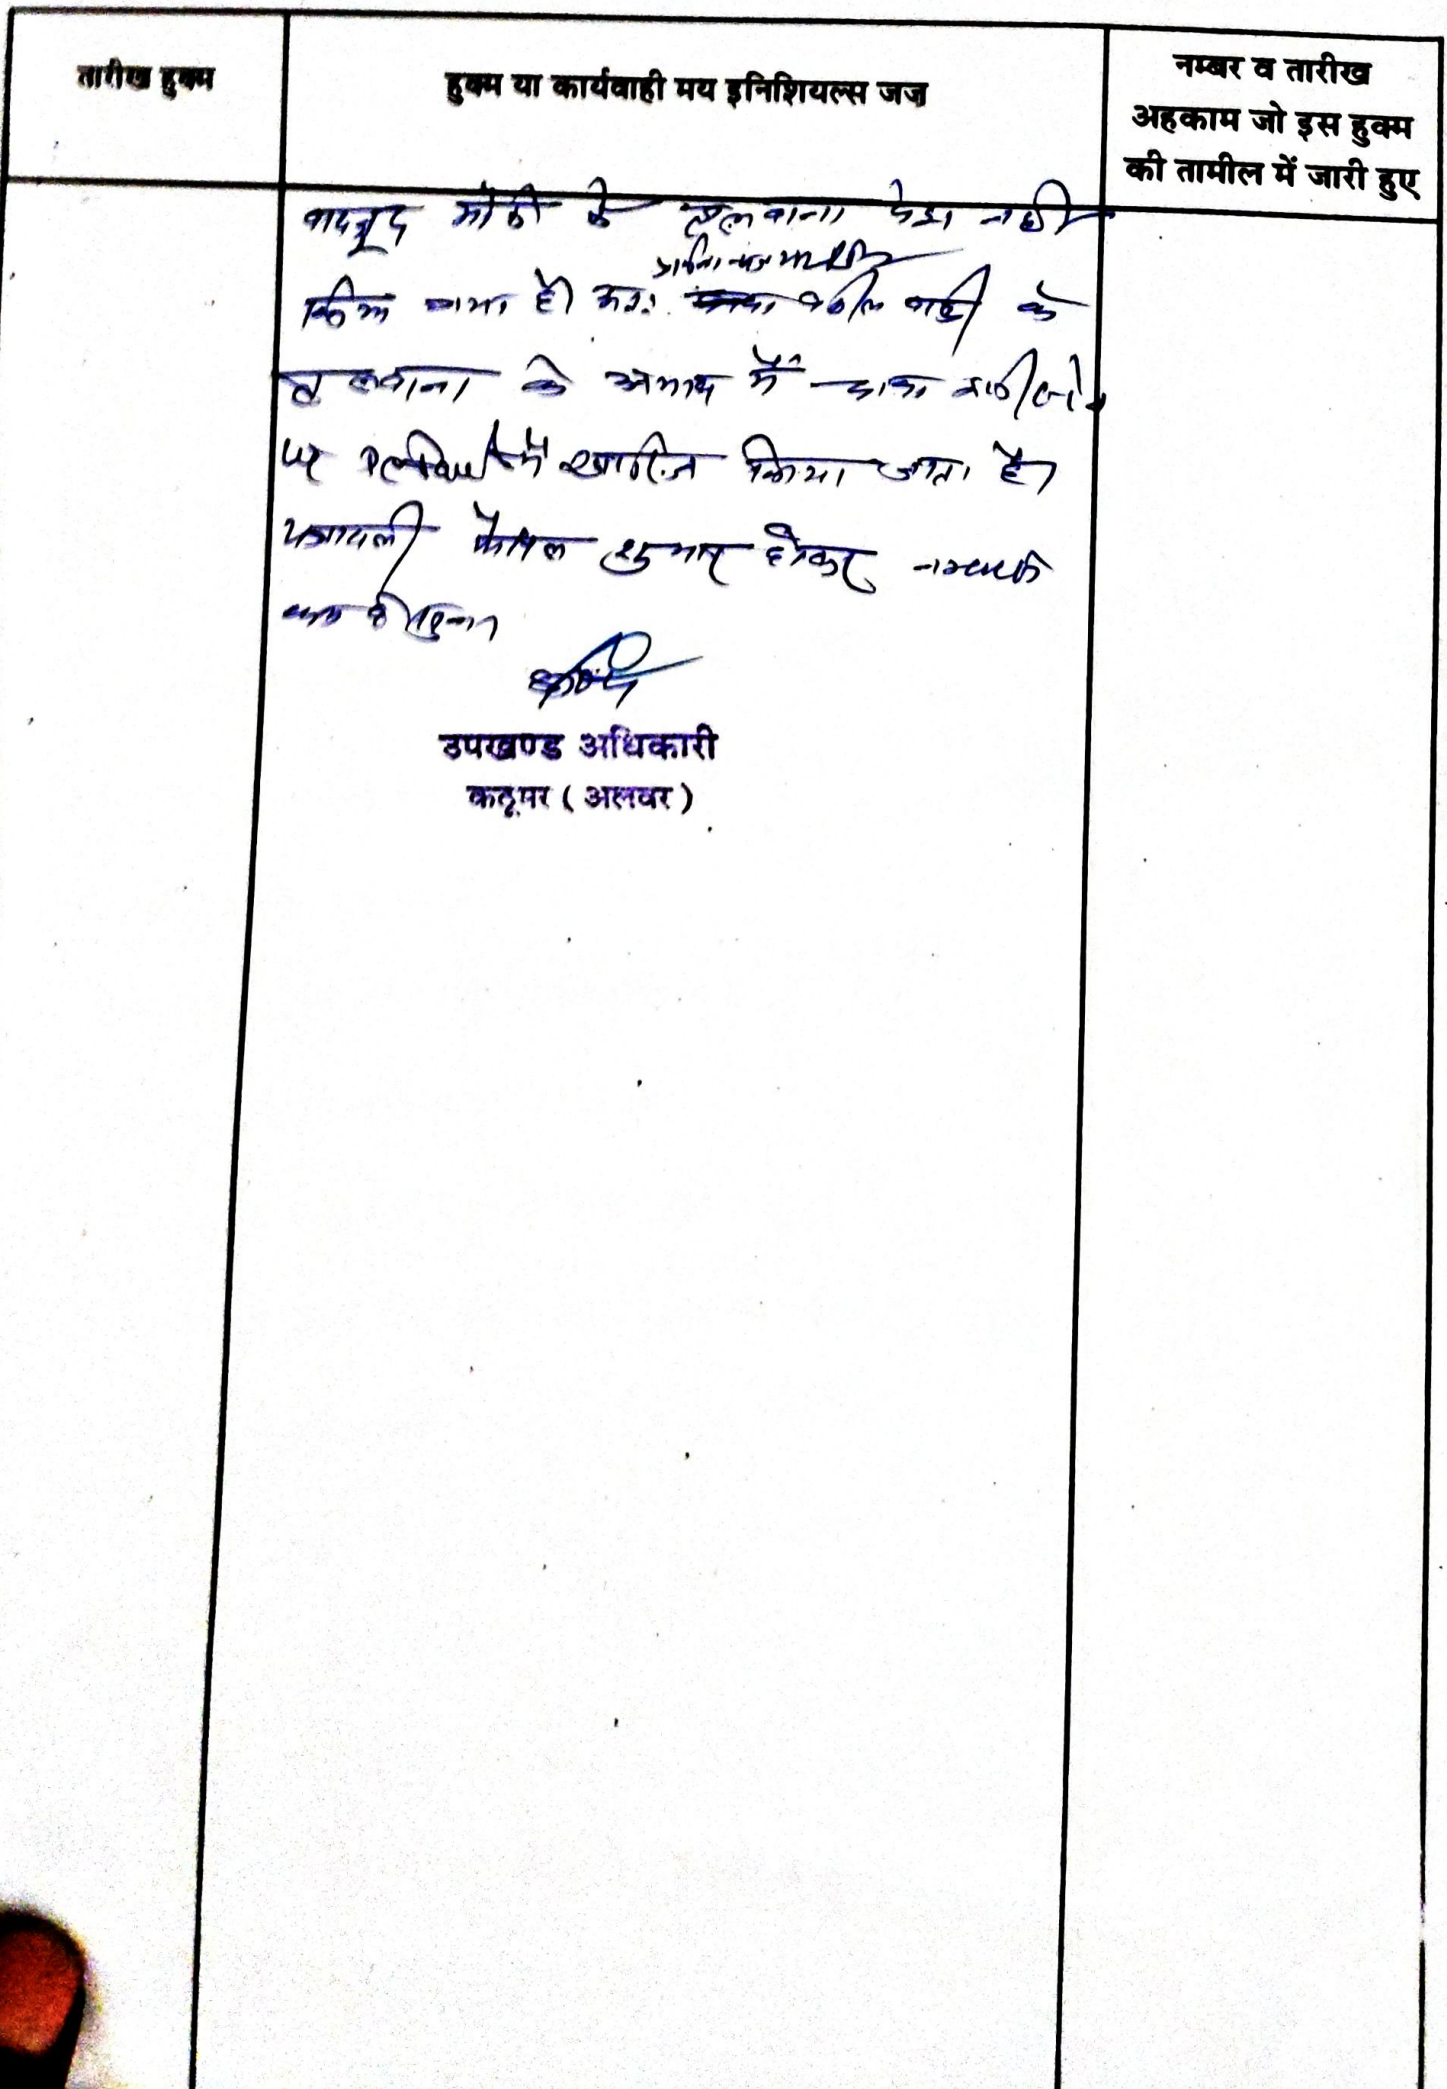 तारीख हुक्म
हुक्म या कार्यवाही मय इनिशियल्स जज
नम्बर व तारीख
अहकाम जो इस हुक्म
की तामील में जारी हुए
बावजूद मौके के तलवाना पेश नहीं
प्रार्थना पत्र
किया गया है। अतः वकील वादी के
तलवाना के अभाव में
पर में खारिज किया जाता है।
पत्रावली फैसल शुमार होकर
उपखण्ड अधिकारी
कठूमर ( अलवर )